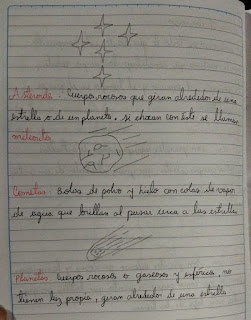 Asteroide. Cuerpo rocosos que giran alrededor de una
estrella o de un planeta, si chocan con éste se llaman
meteorito
Cometas: Bolas de polvo y hielo con colas de vapor
de agua que brillan al pasar cerca a las estrellas
Planetas. Cuerpos rocosos o gaseosos y esféricos no
tienen luz propia, giran alrededor de una estrella